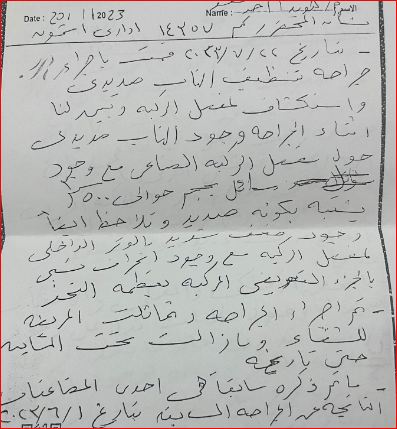 Date : 20 / 11 / 2023 Name : الاسم / هويدا احمد
المحضر رقم ١٤٣٥٧ اداري اشمون
- بتاريخ ٢٠٢٣/٧/٢٢ قمت باجراء
جراحه تنظيف التهاب صديدي
واستكشاف لمفصل الركبه وتبين لنا
اثناء الجراحه وجود التهاب صديدى
حول مفصل الركبه الصناعى مع وجود
سائل بحجم حوالى ٥٠٠
يشتبه بكونه صديد وتلاحظ ايضاً
وجود ضعف شديد بالوتر الداخلى
لمفصل الركبه مع وجود انحراف نسبى
بالجزء التعويضى المركب بعظمه الفخذ
- تم اجراء الجراحه وتماثلت المريضه
للشفاء ومازالت تحت المتابعه
حتى تاريخه
- ماتم ذكره سابقا هى احدى المضاعفات
الناتجه عن الجراحه السابقه بتاريخ ٢٠٢٣/٦/١